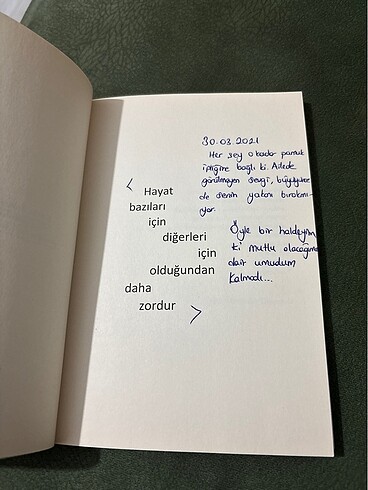 < Hayat
bazıları
için
diğerleri
için
olduğundan
daha
zordur >
30.03.2021
Her şey o kadar pamuk
ipliğine bağlı ki. Ailede
görülmeyen sevgi, büyüyünce
de senin yakanı bırakmı-
yor.
Öyle bir haldeyim
ki mutlu olacağıma
dair umudum
kalmadı...